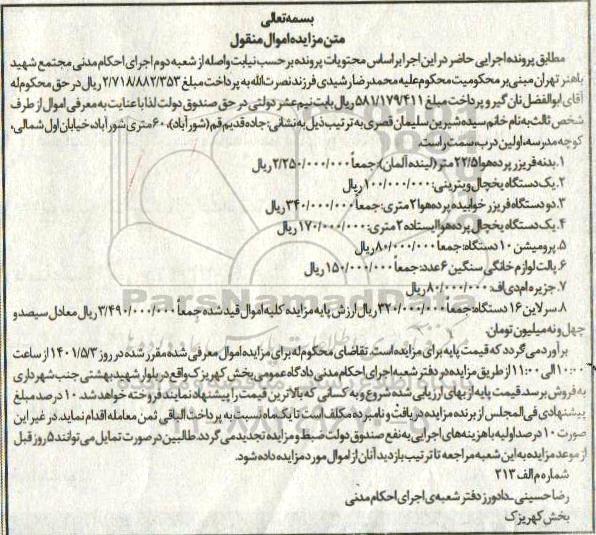 بسمه تعالی
متن مزایده اموال منقول
مطابق پرونده اجرایی حاضر در این اجرا بر اساس محتویات پرونده بر حسب نیابت واصله از شعبه دوم اجرای احکام مدنی مجتمع شهید
باهنر تهران مبنی بر محکومیت محکوم علیه محمدرضا رشیدی فرزند نصرت الله به پرداخت مبلغ ۲/۷۱۸/۸۸۲/۳۵۳ ریال در حق محکوم له
آقای ابوالفضل نان گیر و پرداخت مبلغ ۵۸۱/۱۷۹/۴۱۱ ریال بابت نیم عشر دولتی در حق صندوق دولت لذا با عنایت به معرفی اموال از طرف
شخص ثالث به نام خانم سیده شیرین سلیمان قصری به ترتیب ذیل به نشانی: جاده قدیم قم (شورآباد)، ۶۰ متری شورآباد، خیابان اول شمالی،
کوچه مدرسه، اولین درب، سمت راست.
۱. بدنه فریزر پرده هوا ۲۲/۵ متر (لینده آلمان): جمعاً ۲/۲۵۰/۰۰۰/۰۰۰ ریال
۲. یک دستگاه یخچال ویترینی: ۱۰۰/۰۰۰/۰۰۰ ریال
۳. دو دستگاه فریزر خوابیده پرده هوا ۲ متری: جمعاً ۳۴۰/۰۰۰/۰۰۰ ریال
۴. یک دستگاه یخچال پرده هوا ایستاده ۲ متری: ۱۷۰/۰۰۰/۰۰۰ ریال
۵. پرومیشن ۱۰ دستگاه: جمعاً ۸۰/۰۰۰/۰۰۰ ریال
۶. پالت لوازم خانگی سنگین ۶ عدد: جمعاً ۱۵۰/۰۰۰/۰۰۰ ریال
۷. جزیره ام دی اف: ۸۰/۰۰۰/۰۰۰ ریال
۸. سرلاین ۱۶ دستگاه: جمعاً ۳۲۰/۰۰۰/۰۰۰ ریال ارزش پایه مزایده کلیه اموال قید شده جمعاً ۳/۴۹۰/۰۰۰/۰۰۰ ریال معادل سیصد و
چهل و نه میلیون تومان.
برآورد می گردد که قیمت پایه برای مزایده است. تقاضای محکوم له برای مزایده اموال معرفی شده مقرر شده در روز ۱۴۰۱/۵/۳ از ساعت
۱۰:۰۰ الی ۱۱:۰۰ از طریق مزایده در دفتر شعبه اجرای احکام مدنی دادگاه عمومی بخش کهریزک واقع در بلوار شهید بهشتی جنب شهرداری
به فروش برسد. قیمت پایه از بهای ارزیابی شده شروع و به کسانی که بالاترین قیمت را پیشنهاد نمایند فروخته خواهد شد. ۱۰ درصد مبلغ
پیشنهادی فی المجلس از برنده مزایده دریافت و نامبرده مکلف است تا یک ماه نسبت به پرداخت الباقی ثمن معامله اقدام نماید. در غیر این
صورت ۱۰ درصد اولیه با هزینه های اجرایی به نفع صندوق دولت ضبط و مزایده تجدید می گردد. طالبین در صورت تمایل می توانند ۵ روز قبل
از موعد مزایده به این شعبه مراجعه تا ترتیب بازدید آنان از اموال مورد مزایده داده شود.
شماره م الف ۲۱۳
رضا حسینی - دادورز دفتر شعبه ی اجرای احکام مدنی
بخش کهریزک
ParsNamadData